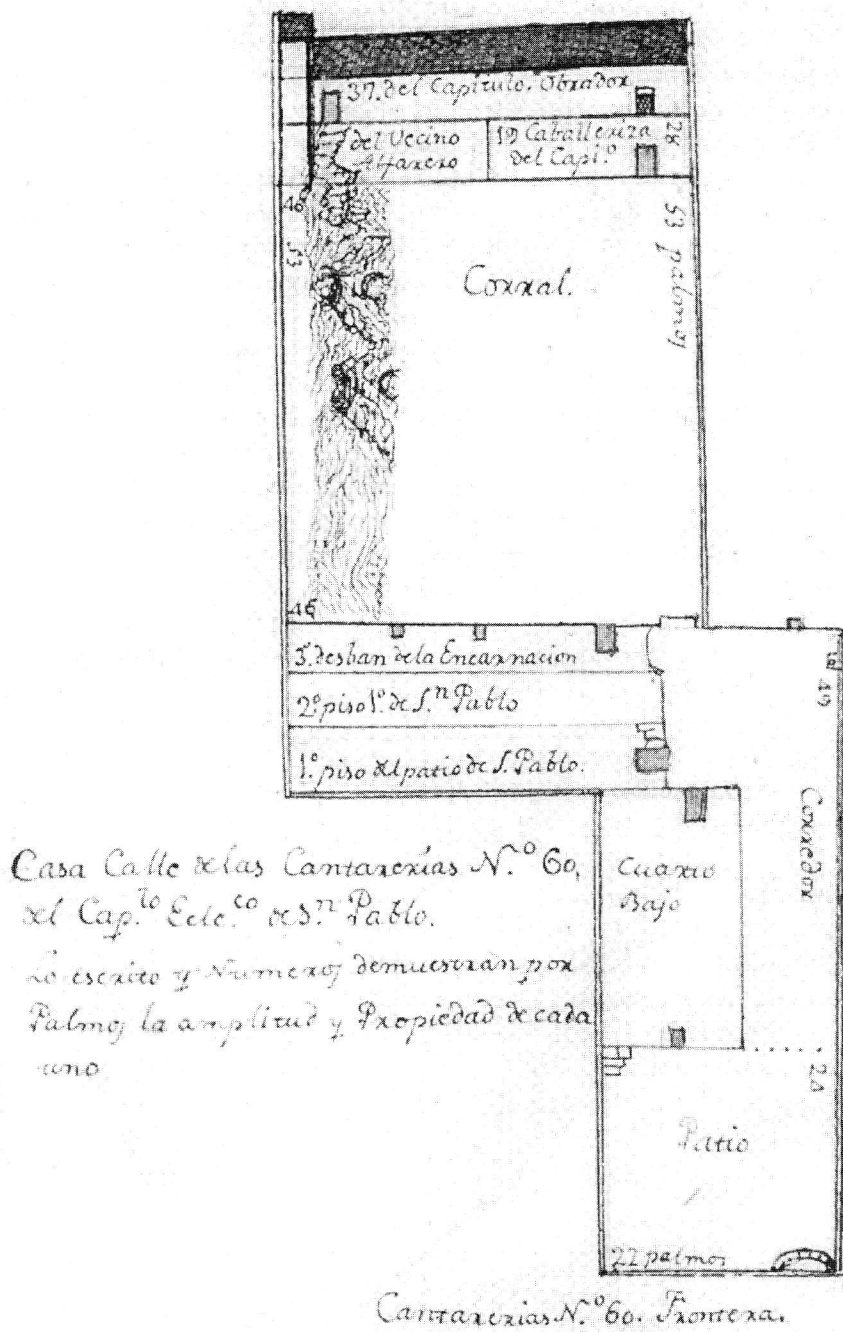 37. del Capitulo. Obrador
del Vecino
Alfarero
19 Caballeriza
del Capl.º
28
46
53
53 palmos
Corral.
46
3.º desban de la Encarnacion
2.º piso 1.º de S.n Pablo
1.º piso del patio de S. Pablo.
Corredor
Cuarto
Bajo
Casa Calle de las Cantarerías N.º 60,
del Cap.to Ecle.co de S.n Pablo.
Lo escrito y Numeros demuestran por
Palmos la amplitud y Propiedad de cada
uno
Patio
22 palmos
Cantarerias N.º 60. Frontera.